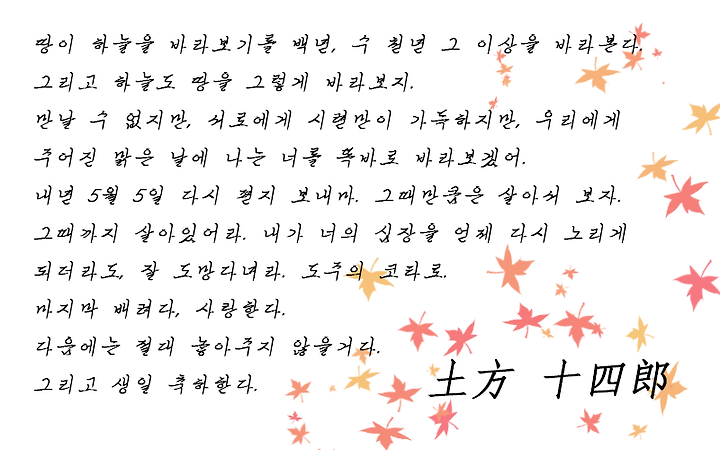 땅이 하늘을 바라보기를 백년, 수 천년 그 이상을 바라본다.
그리고 하늘도 땅을 그렇게 바라보지.
만날 수 없지만, 서로에게 시련만이 가득하지만, 우리에게
주어진 맑은 날에 나는 너를 똑바로 바라보겠어.
내년 5월 5일 다시 편지 보내마. 그때만큼은 살아서 보자.
그때까지 살아있어라. 내가 너의 심장을 언제 다시 노리게
되더라도, 잘 도망다녀라. 도주의 코타로.
마지막 배려다, 사랑한다.
다음에는 절대 놓아주지 않을거다.
그리고 생일 축하한다.
土方 十四郎